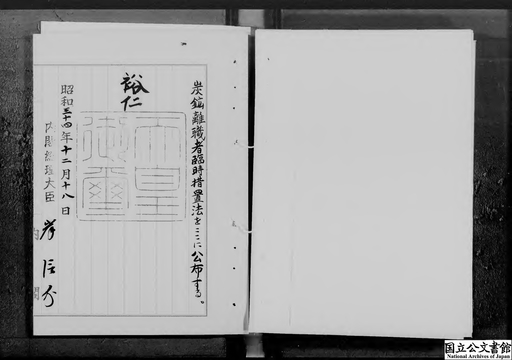 炭鉱離職者臨時措置法をここに公布する。
裕仁
天皇御璽
昭和三十四年十二月十八日
内閣総理大臣 岸信介
国立公文書館
National Archives of Japan